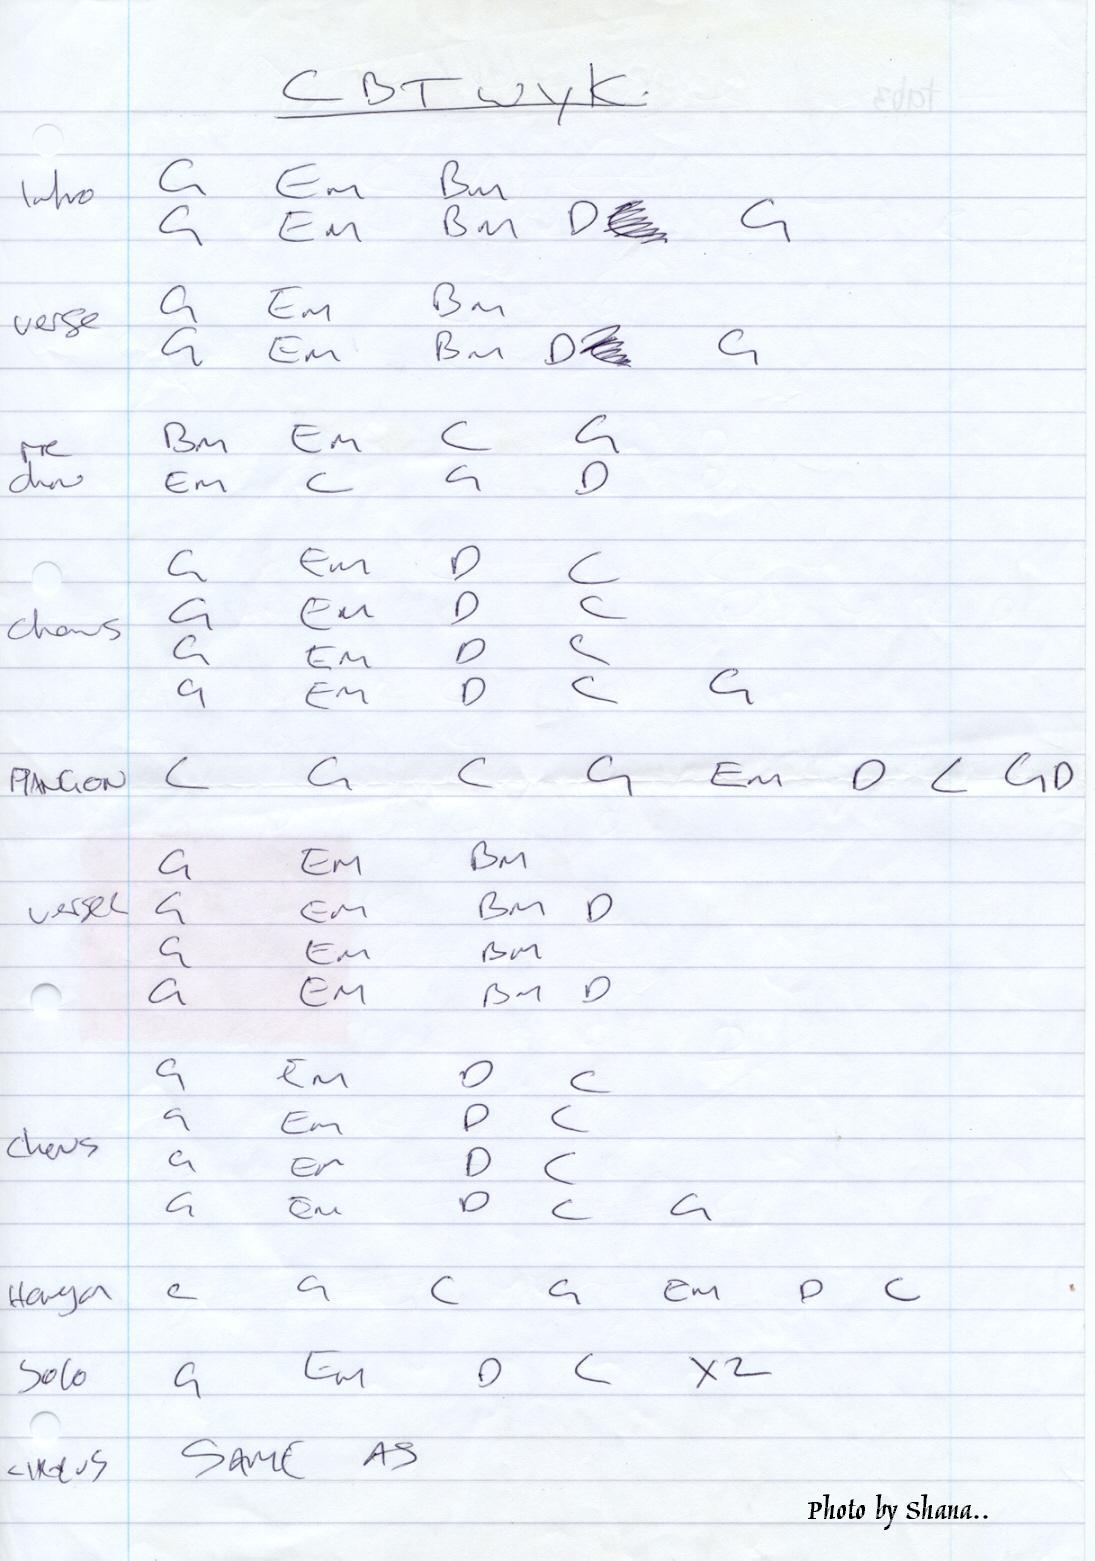 CBTWYK.
Intro G Em Bm
G Em Bm D G
verse G Em Bm
G Em Bm D G
Pre Bm Em C G
chorus Em C G D
G Em D C
chorus G Em D C
G Em D C
G Em D C G
HANG ON C G C G Em D C G D
G Em Bm
verse 2 G Em Bm D
G Em Bm
G Em Bm D
G Em D C
chorus G Em D C
G Em D C
G Em D C G
Hang on C G C G Em D C
Solo G Em D C X2
chorus SAME AS
Photo by Shana..